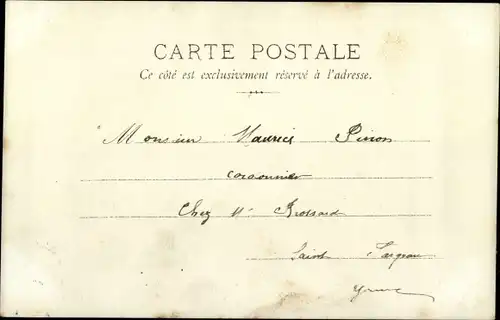 CARTE POSTALE
Ce côté est exclusivement réservé à l'adresse.
Monsieur Maurice Pinon
cordonnier
Chez Mr Brossard
Saint Fargeau
Yonne